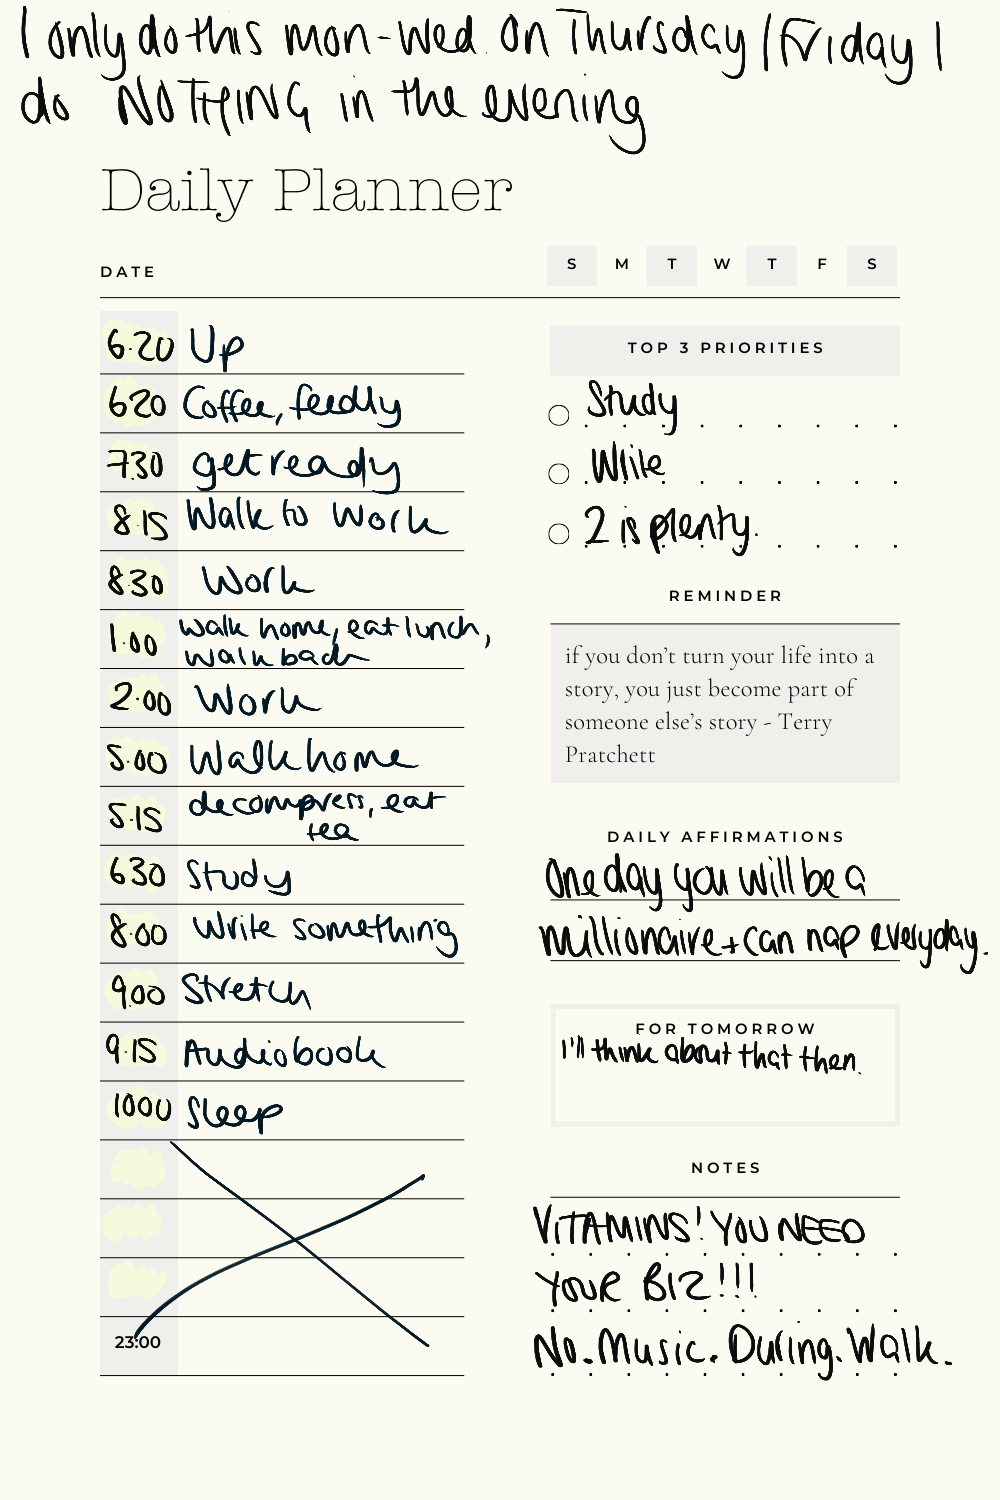 I only do this mon-wed. On Thursday/Friday I
do NOTHING in the evening
Daily Planner
DATE
S M T W T F S
6.20 Up
620 Coffee, feedly
730 get ready
8.15 Walk to Work
8.30 Work
1.00 walk home, eat lunch,
walk back
2.00 Work
5.00 Walk home
5.15 decompress, eat
tea
630 Study
8.00 Write something
9.00 Stretch
9.15 Audiobook
1000 Sleep
23:00
TOP 3 PRIORITIES
Study
Write
2 is plenty.
REMINDER
if you don’t turn your life into a
story, you just become part of
someone else’s story - Terry
Pratchett
DAILY AFFIRMATIONS
One day you will be a
millionaire + can nap everyday.
FOR TOMORROW
I'll think about that then.
NOTES
VITAMINS! YOU NEED
YOUR B12!!!
No. Music. During. Walk.